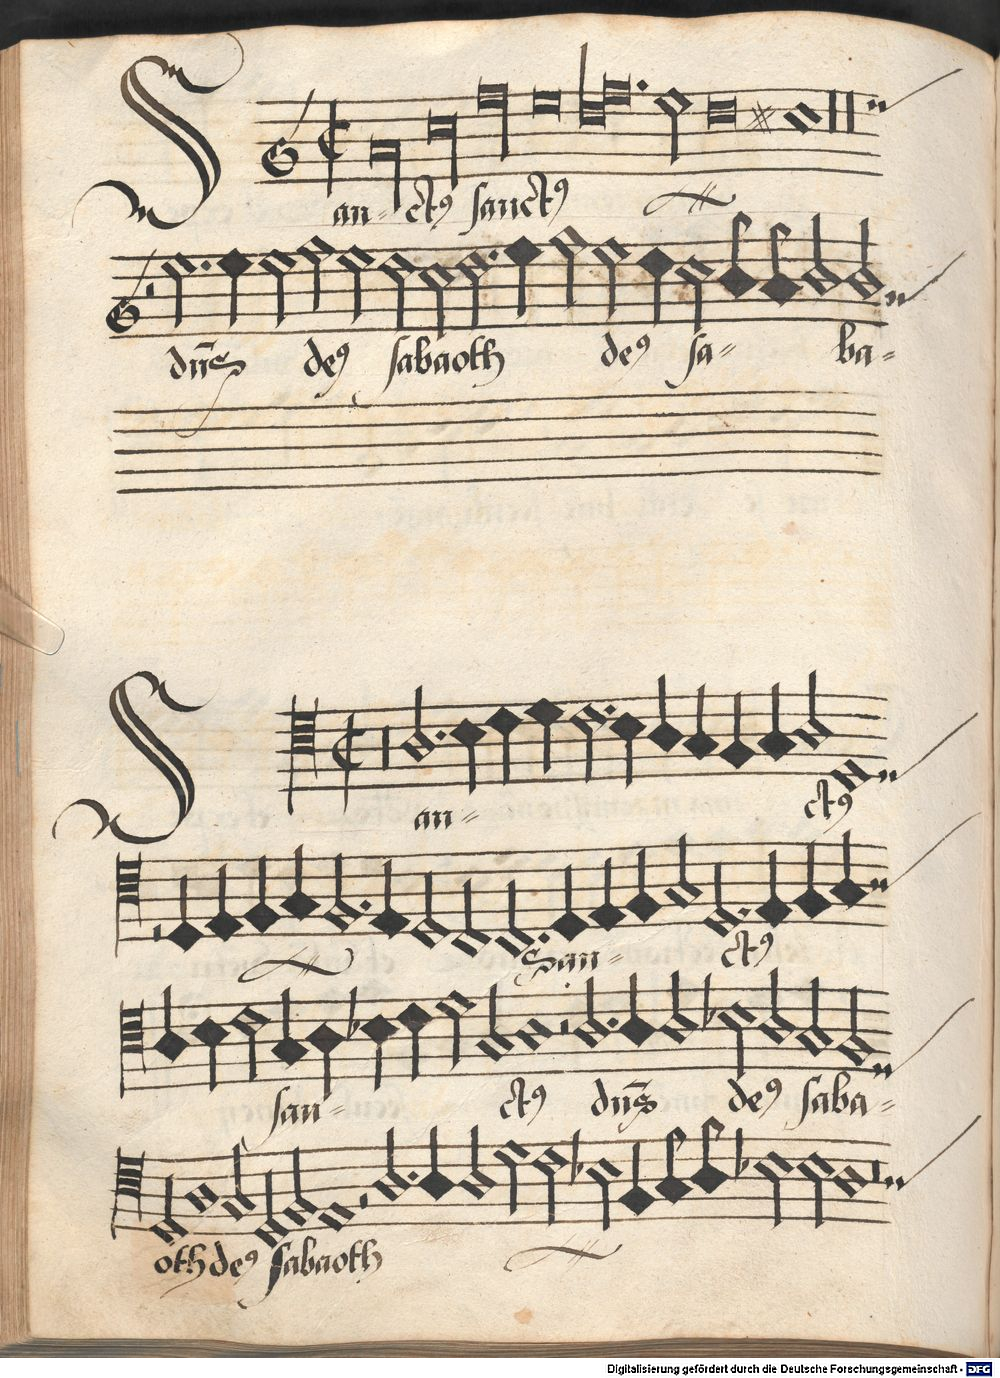 San- ctꝰ sanctꝰ
dn̄s deꝰ sabaoth deꝰ sa- ba-
San- ctꝰ
San- ctꝰ
san- ctꝰ dn̄s deꝰ saba-
oth deꝰ sabaoth
Digitalisierung gefördert durch die Deutsche Forschungsgemeinschaft - DFG